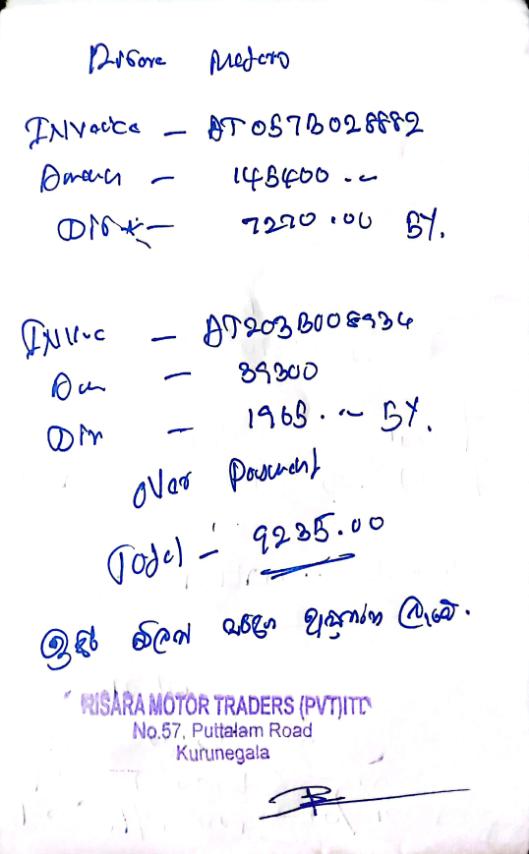 Risara Motors
INVoice - AT057B028882
Amoun - 145400.~
DIS - 7270.00 5%.
INV - AT203B008934
Am - 39300
DIS - 1965.~ 5%.
OVer Payment
Total - 9235.00
RISARA MOTOR TRADERS (PVT)LTD
No.57, Puttalam Road
Kurunegala